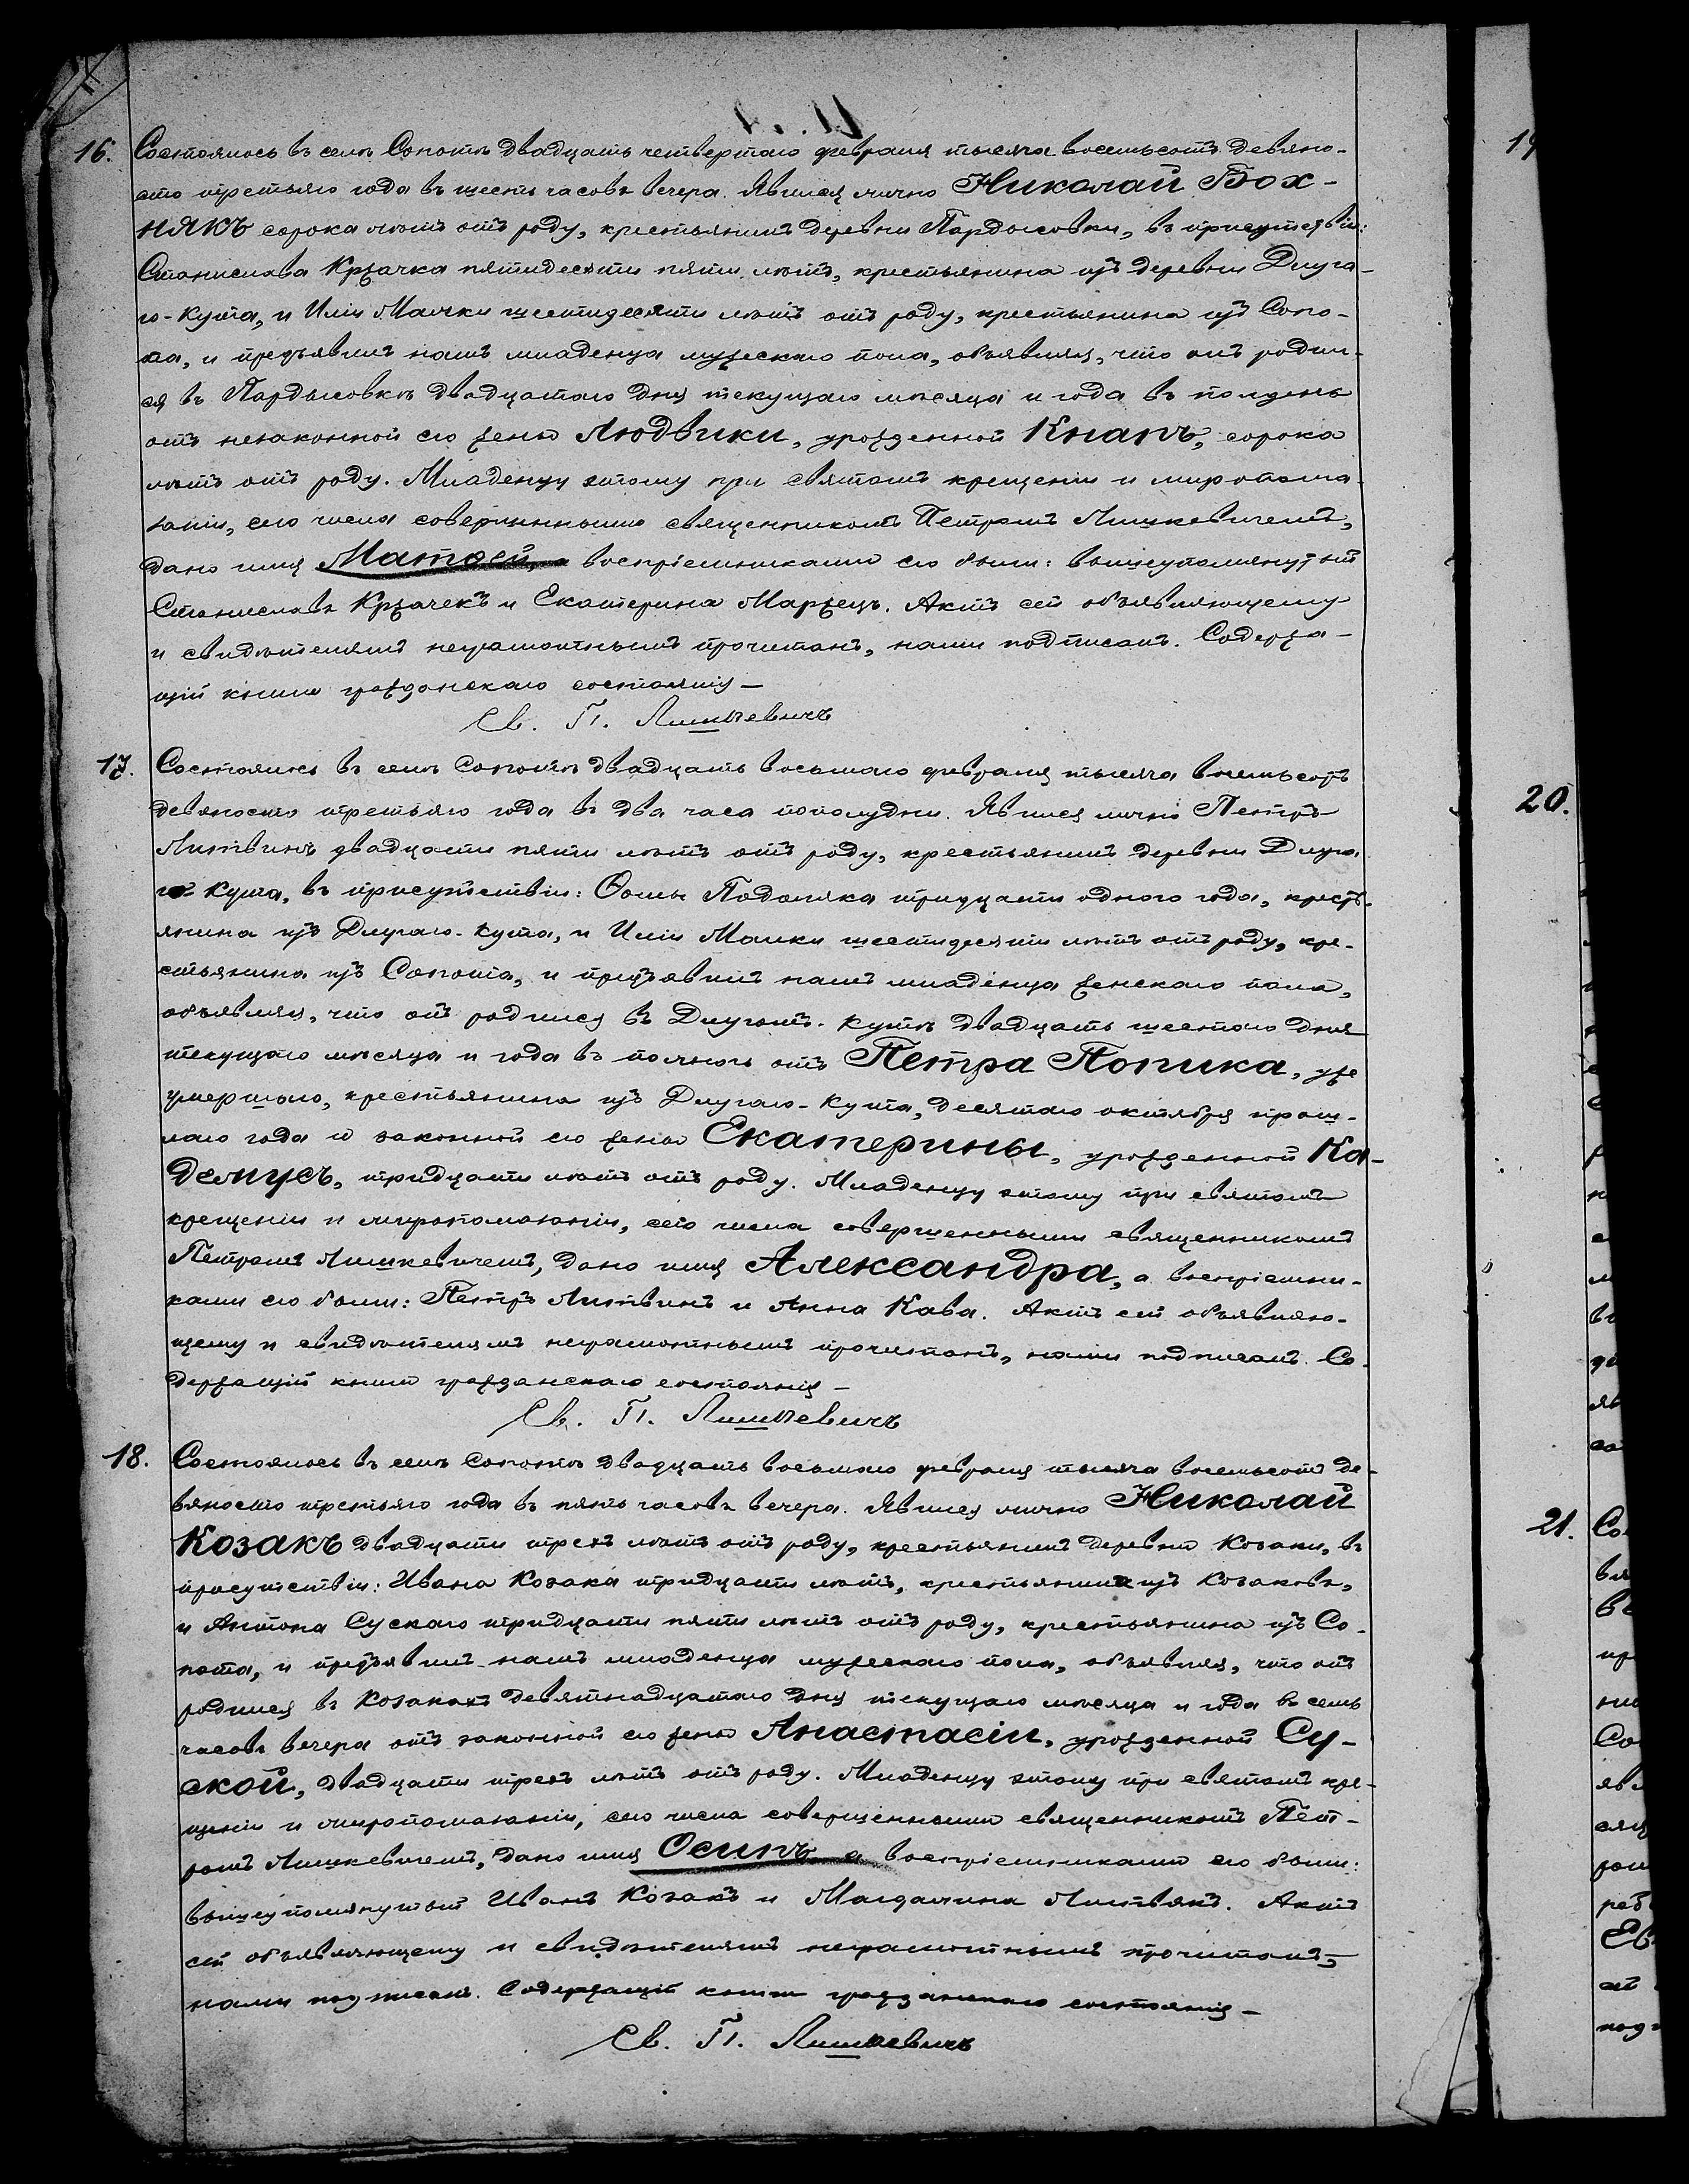 16. Состоялось въ селѣ Сопотѣ двадцать четвертаго февраля тысяча восемьсотъ девяно-
сто третьяго года въ шесть часовъ вечера. Явился лично Николай Бох-
някъ сорока лѣтъ отъ роду, крестьянинъ деревни Пардысовки, въ присутствіи:
Станислава Кржачка пятидесяти пяти лѣтъ, крестьянина изъ деревни Длуга-
го-Кута, и Иліи Малки шестидесяти лѣтъ отъ роду, крестьянина изъ Сопо-
та, и предъявилъ намъ младенца мужескаго пола, объявляя, что онъ родил-
ся въ Пардысовкѣ двадцатаго дня текущаго мѣсяца и года въ полдень
отъ незаконной его жены Людвики, урожденной Кнапъ, сорока
лѣтъ отъ роду. Младенцу этому при святомъ крещеніи и миропома-
заніи, сего числа совершенныхъ священникомъ Петромъ Лишкевичемъ,
дано имя Матѳей, а воспріемниками его были: вышеупомянутый
Станиславъ Кржачекъ и Екатерина Маржецъ. Актъ сей объявляющему
и свидѣтелямъ неграмотнымъ прочитанъ, нами подписанъ. Содержа-
щій книги гражданскаго состоянія —
Св. П. Лишкевичъ
17. Состоялось въ селѣ Сопотѣ двадцать восьмаго февраля тысяча восемьсотъ
девяносто третьяго года въ два часа пополудни. Явился лично Петръ
Литвинъ двадцати пяти лѣтъ отъ роду, крестьянинъ деревни Длуга
го-Кута, въ присутствіи: Ѳомы Подоляка тридцати одного года, кресть-
янина изъ Длугаго-Кута, и Иліи Малки шестидесяти лѣтъ отъ роду, кре-
стьянина изъ Сопота, и предъявилъ намъ младенца женскаго пола,
объявляя, что онъ родился въ Длугомъ-Кутѣ двадцать шестаго дня
текущаго мѣсяца и года въ полночь отъ Петра Попика, уже
умершаго, крестьянина изъ Длугаго-Кута, десятаго октября прош-
лаго года и законной его жены Екатерины, урожденной Ка-
демусъ, тридцати лѣтъ отъ роду. Младенцу этому при святомъ
крещеніи и миропомазаніи, сего числа совершенныхъ священникомъ
Петромъ Лишкевичемъ, дано имя Александра, а воспріемни-
ками его были: Петръ Литвинъ и Анна Кава. Актъ сей объявляю-
щему и свидѣтелямъ неграмотнымъ прочитанъ, нами подписанъ. Со-
держащій книги гражданскаго состоянія —
Св. П. Лишкевичъ
18. Состоялось въ селѣ Сопотѣ двадцать восьмаго февраля тысяча восемьсотъ де-
вяносто третьяго года въ пять часовъ вечера. Явился лично Николай
Козакъ двадцати трехъ лѣтъ отъ роду, крестьянинъ деревни Козаки, въ
присутствіи: Ивана Козака тридцати лѣтъ, крестьянина изъ Козаковъ,
и Антона Сускаго тридцати пяти лѣтъ отъ роду, крестьянина изъ Со-
пота, и предъявилъ намъ младенца мужескаго пола, объявляя, что онъ
родился въ Козакахъ девятнадцатаго дня текущаго мѣсяца и года въ семь
часовъ вечера отъ законной его жены Анастасіи, урожденной Су-
ской, двадцати трехъ лѣтъ отъ роду. Младенцу этому при святомъ кре-
щеніи и миропомазаніи, сего числа совершенныхъ священникомъ Пет-
ромъ Лишкевичемъ, дано имя Осипъ, а воспріемниками его были:
вышеупомянутый Иванъ Козакъ и Магдалина Литвякъ. Актъ
сей объявляющему и свидѣтелямъ неграмотнымъ прочитанъ,
нами подписанъ. Содержащій книги гражданскаго состоянія —
Св. П. Лишкевичъ
19
20.
21.